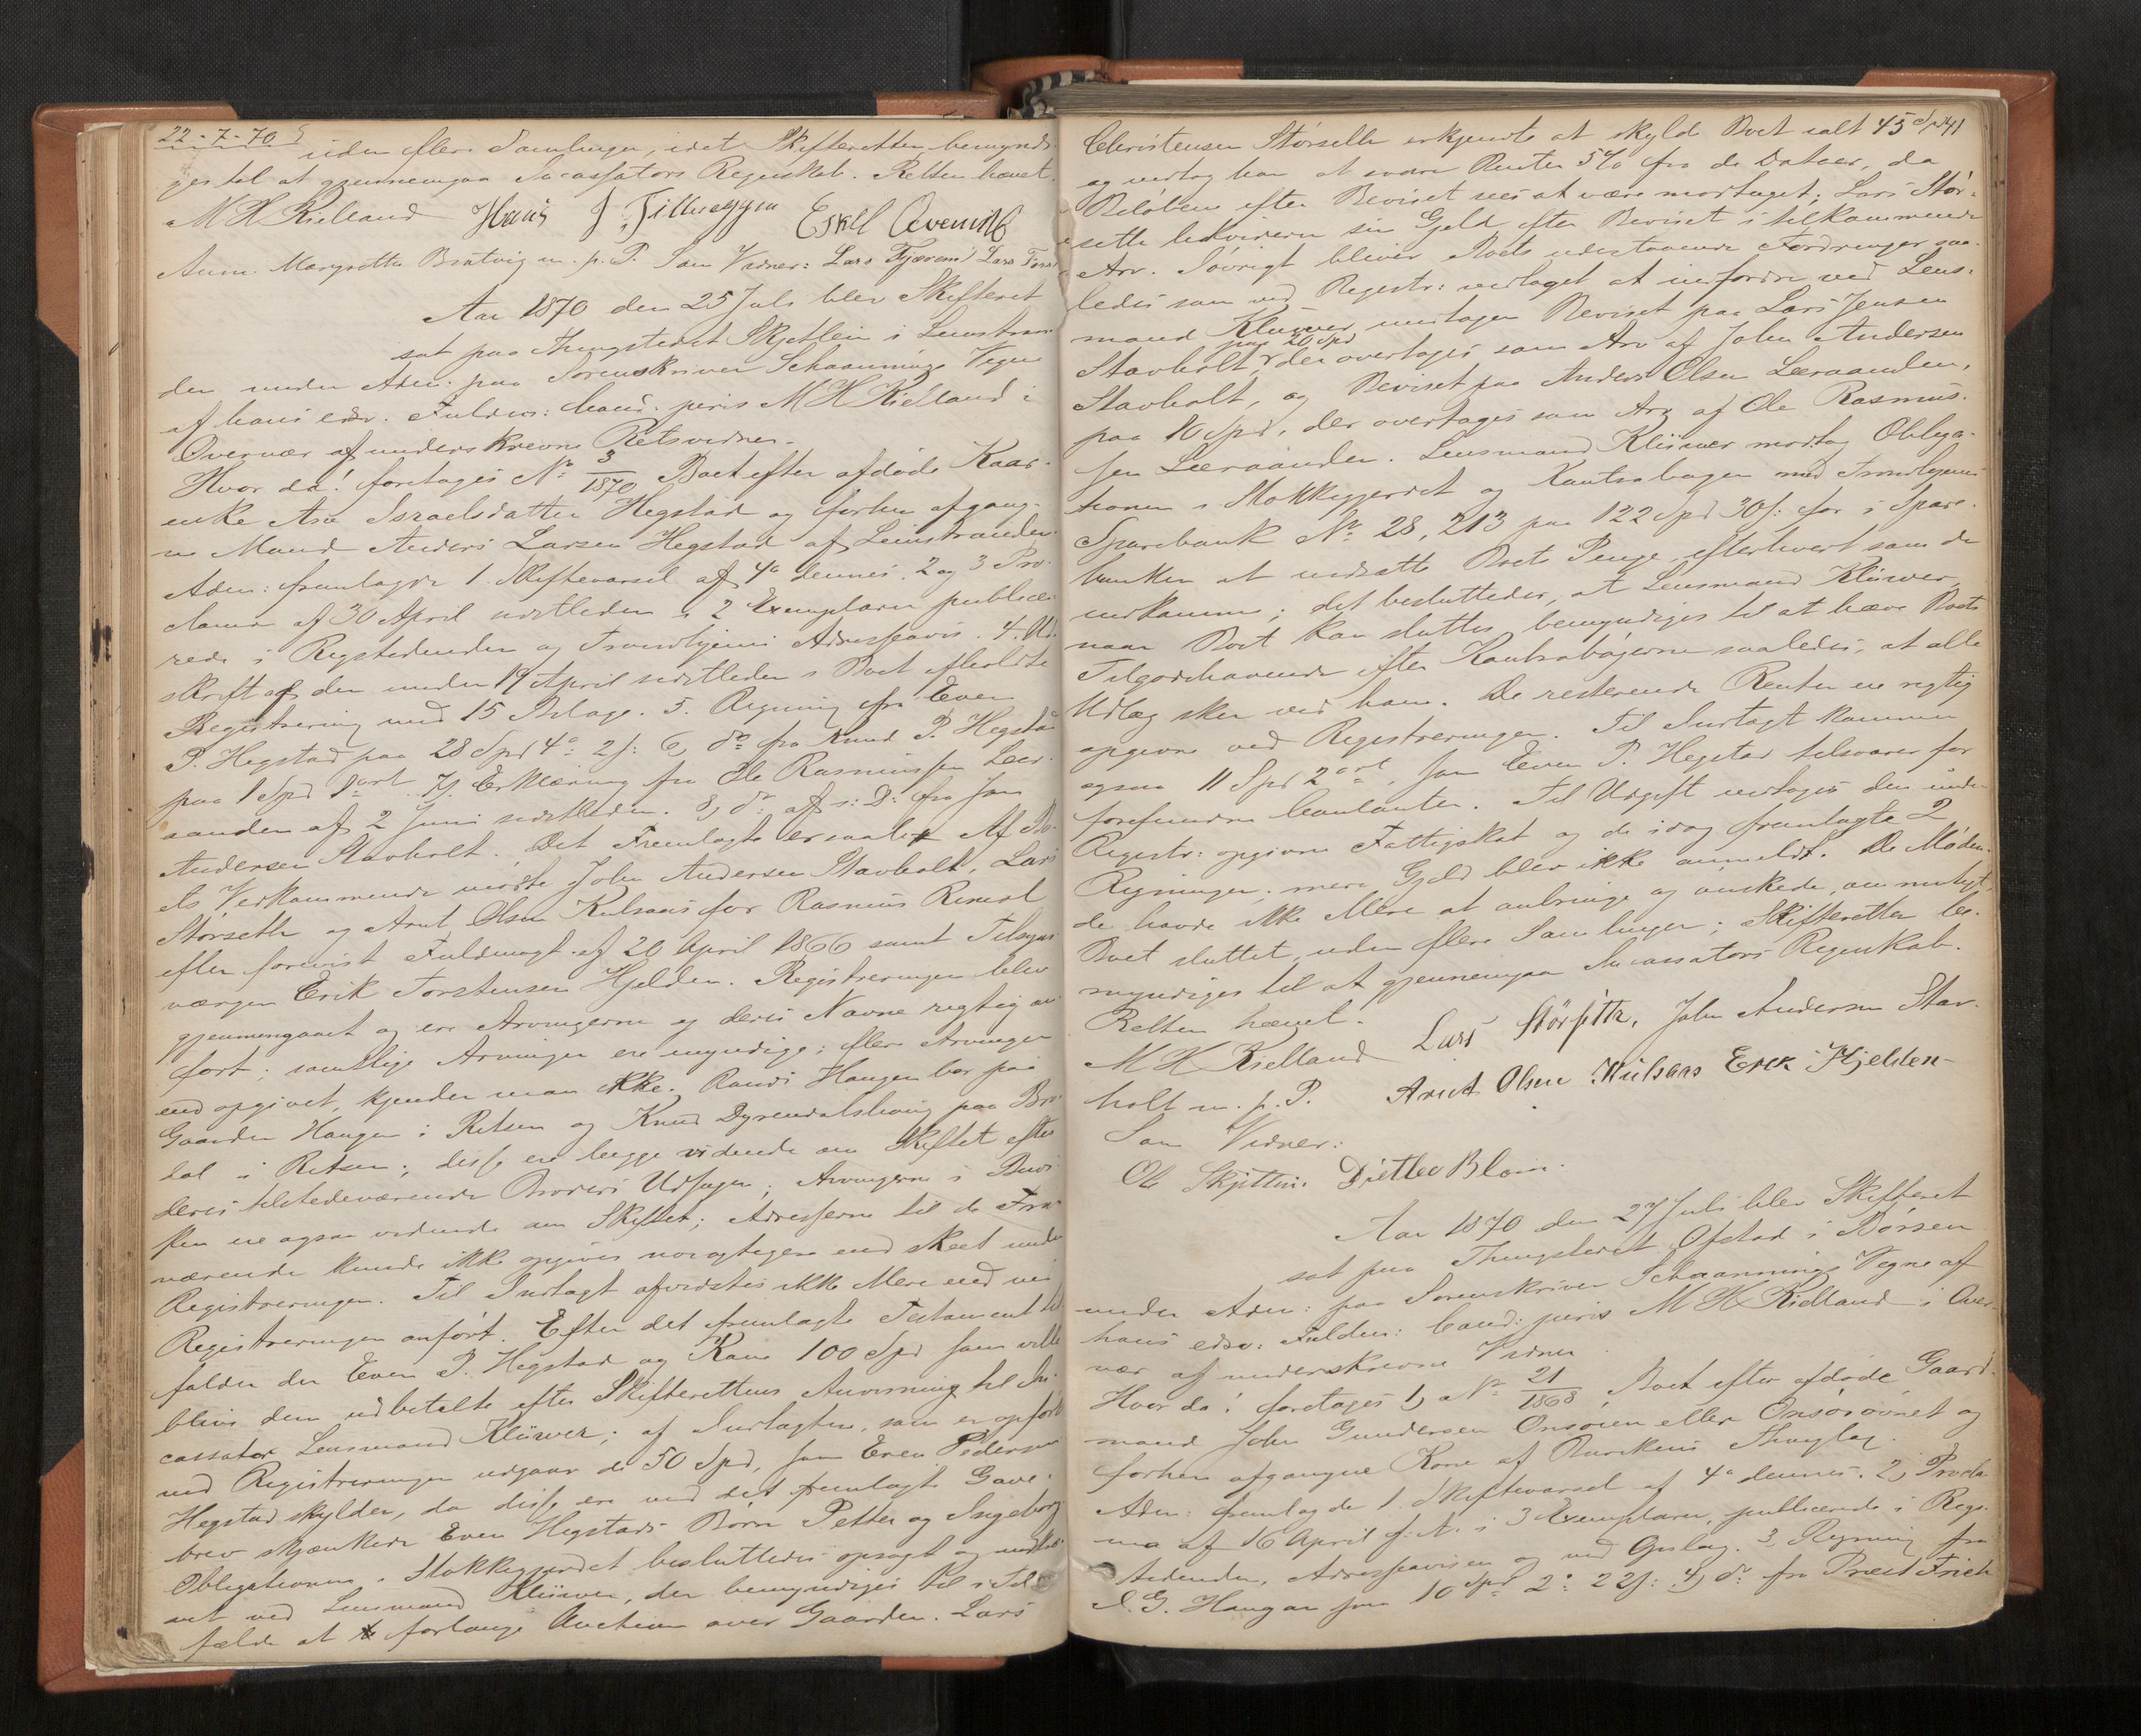 22-7-70
uden flere Samlinger, idet Skifteretten bemyndi-
ges til at gjennemgaa Incassators Regnskab. Retten hævet.
M H Kielland Hans J. Eskil
Anne Margrethe Bratvig m. p. P. Som Vidner: Lars Fjæren Lars
Aar 1870 den 25 Juli blev Skifteret
sat paa Thingstedet Skjetlein i Leinstran-
den under Adm: paa Sorenskriver Schaannings Vegne
af hans edsv. Fuldm: Cand: juris M H Kielland i
Overvær af underskrevne Retsvidner.
Hvor da! foretoges No 3/1870 Boet efter afdøde Kaar-
enke Ane Israelsdatter Hegstad og forhen afgang-
ne Mand Anders Larsen Hegstad af Leinstranden.
Adm: fremlagde 1. Skiftevarsel af 4de dennes, 2 og 3 Pro-
clama af 30 April sidstleden i 2 Exemplarer publice-
rede i Rigstidenden og Trondhjems Adresseavis. 4. Ud-
skrift af den under 19 April sidstleden i Boet afholdte
Registrering med 15 Bilage. 5. Regning fra Even
P. Hegstad paa 28 Spd 4 2 s: 6, do fra Knud P. Hegstad
paa 1 Spd ort. 7. Erklæring fra Ole Rasmussen Leer-
aanden af 2 Juni sidstleden. 8, do af s: D: fra John
Andersen Stavholt. Det Fremlagte er saal. Af Bo-
ets Vedkommende mødte John Andersen Stavholt, Lars
Størseth og Arnt Olsen Kulsaas for Rasmus
efter forevist Fuldmagt af 20 April 1866 samt Tilsyns-
værgen Erik Torstensen Hjelden. Registreringen blev
gjennemgaaet og ere Arvingerne og deres Navne rigtig an-
ført; samtlige Arvinger ere myndige; flere Arvinger
end opgivet, kjender man ikke. Randi Haugen bor paa
Gaarden Haugen i Ritsen og Knud Dyrendalshaug paa
dal i Ritsen; disse ere begge vidende om Skiftet efter
deres tilstedeværende Broders Udsagn; Arvingerne i
ere ogsaa vidende om Skiftet; Adresserne til de Fra-
værende kunde ikke opgives nøiagtigere end skeet under
Registreringen. Til Indtægt afvidstes ikke Mere end ved
Registreringen anført. Efter det fremlagte Testament til-
falder der Even P. Hegstad og Kone 100 Spd som ville
blive dem udbetalte efter Skifterettens Anvisning til In-
cassator Lensmand Klüwer; af Indtægten, som er opført
ved Registreringen udgaar de 50 Spd, som Even Pedersen
Hegstad skylder, da disse ere ved det fremlagte Gave-
brev skjænkede Even Hegstads Børn Petter og Ingeborg.
Obligationen i Stokkegjerdet besluttedes opsagt og inddre-
vet ved Lensmand Klüwer, der bemyndiges til i Til-
fælde at forlange Auction over Gaarden. Lars
Christensen Størseth erkjendte at skylde Boet ialt 45 Spd 41
og vedtog han at svare Renter 5% fra de Datoer, da
Beløbene efter Beviset sees at være modtaget; Lars Stør-
seth liqviderer sin Gjeld efter Beviset i tilkommende
Arv. Iøvrigt bliver Boets udestaaende Fordringer saa-
ledes som ved Registr: vedtaget at indfordre ved Lens-
mand Klüwer undtagen Beviset paa Lars Jensen
Stavholt paa 20 Spd der overtages som Arv af John Andersen
Stavholt, og Beviset paa Anders Olsen Leeraanden,
paa 10 Spd, der overtages som Arv af Ole Rasmus-
sen Leeraanden. Lensmand Klüwer modtog Obliga-
tionen i Stokkegjerdet og Kontrabogen med Trondhjems
Sparebank No 28,213 paa 122 Spd 30 s: for i Spare-
banken at indsætte Boets Penge, efterhvert som de
indkomme; det besluttedes, at Lensmand Klüwer,
naar Boet kan sluttes bemyndiges til at hæve Boets
Tilgodehavende efter Kontrabøgerne saaledes, at alle
Udlæg sker ved ham. De resterende Renter ere rigtig
opgivne ved Registreringen. Til Indtægt kommer
ogsaa 11 Spd 2 ort, som Even P. Hegstad tilsvarer for
forefundne Contanter. Til Udgift vedtoges den under
Registr: opgivne Fattigskat og de idag fremlagte 2
Regninger; mere Gjeld blev ikke anmeldt. De Møden-
de havde ikke Mere at anbringe og ønskede, om muligt,
Boet sluttet, uden flere Samlinger; Skifteretten be-
myndiges til at gjennemgaa Incassators Regnskab.
Retten hævet.
M H Kielland Lars Størseth, John Andersen Stav-
holt m. p. P. Arnt Olsen Kulsaas Erik Hjelden
Som Vidner:
Ole Skjetlein. Ditlev Blom.
Aar 1870 den 27 Juli blev Skifteret
sat paa Thingstedet Ofstad i Børsen
under Adm: paa Sorenskriver Schaannings Vegne af
hans edsv: Fuldm: Cand: juris M H Kielland i Over-
vær af underskrevne Vidner
Hvor da! foretoges 1, No 21/1868 Boet efter afdøde Gaard-
mand John Gundersen Onsøien eller Onsøiøvret og
forhen afgangne Kone af Buvikens Thinglag.
Adm: fremlagde 1. Skiftevarsel af 4de dennes. 2, Procla-
ma af 16 April f: A: i 3 Exemplarer, publicerede i Rigs-
tidenden, Adresseavisen og ved Opslag. 3, Regning fra
I. G. Haugan paa 10 Spd 2 22 s: 4, do fra Præst Frich